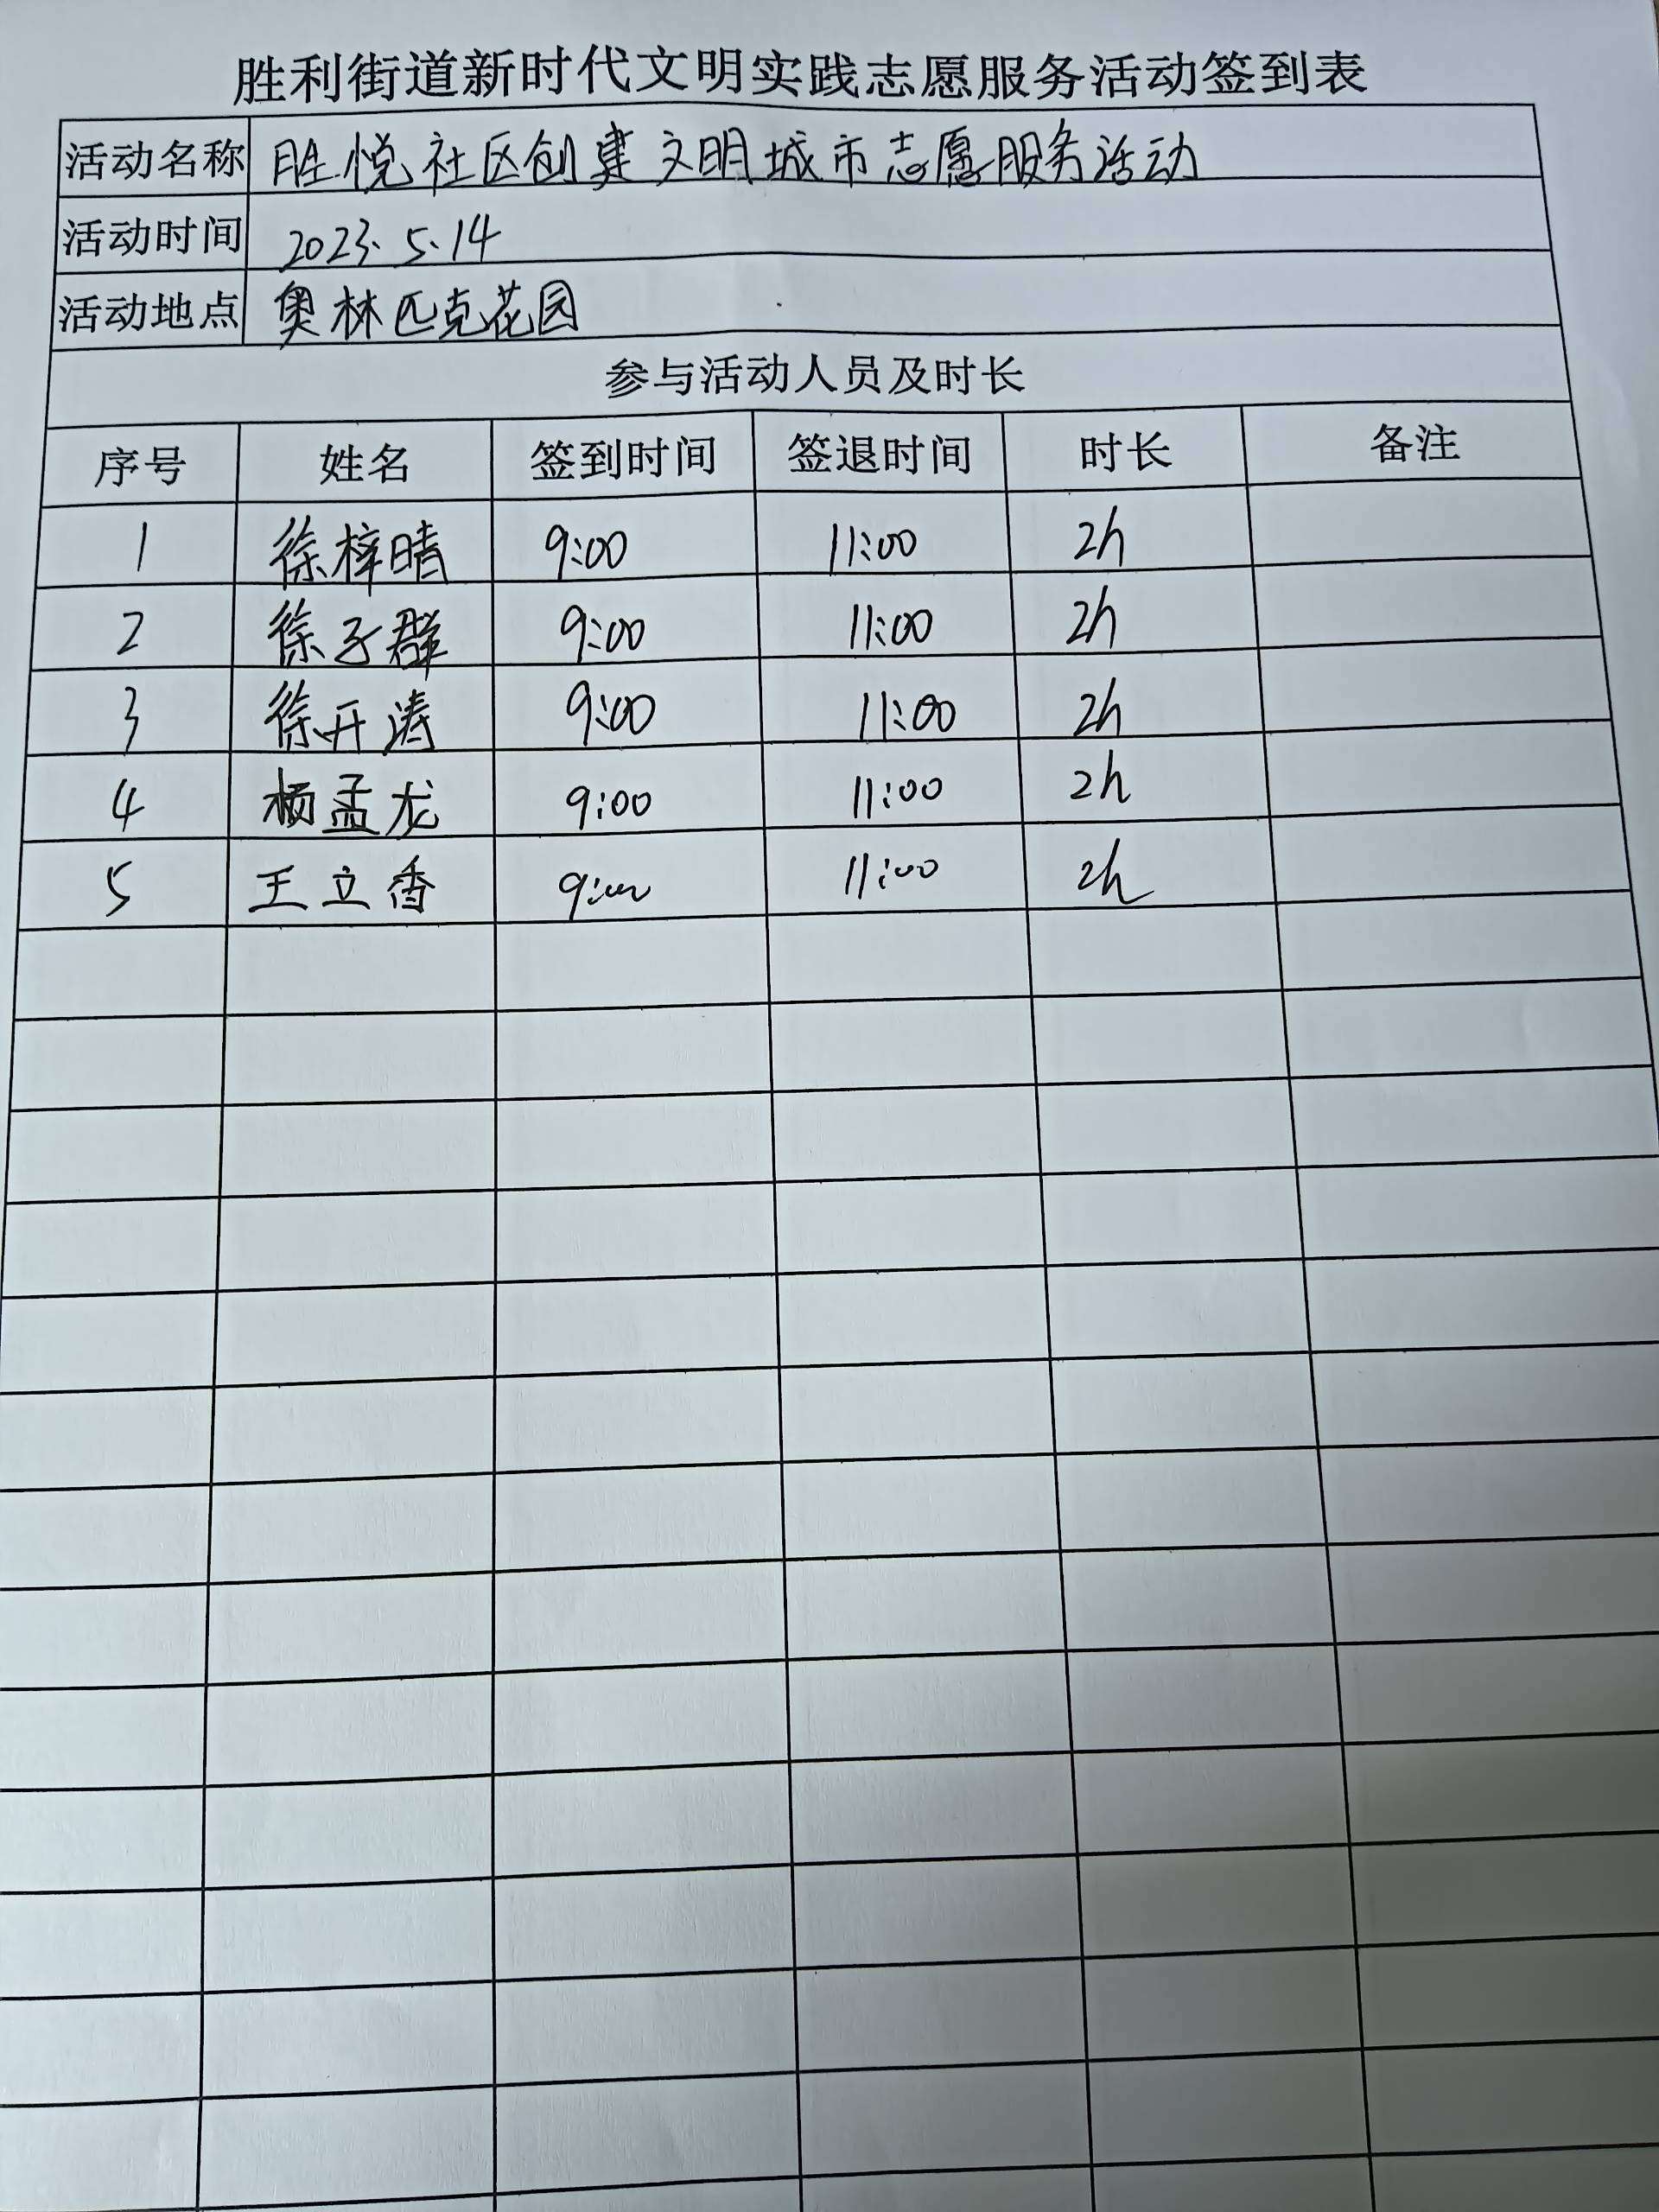 胜利街道新时代文明实践志愿服务活动签到表
活动名称 胜悦社区创建文明城市志愿服务活动
活动时间 2023.5.14
活动地点 奥林匹克花园
参与活动人员及时长
序号 姓名 签到时间 签退时间 时长 备注
1 徐梓晴 9:00 11:00 2h
2 徐子群 9:00 11:00 2h
3 徐开涛 9:00 11:00 2h
4 杨孟龙 9:00 11:00 2h
5 王立香 9:00 11:00 2h